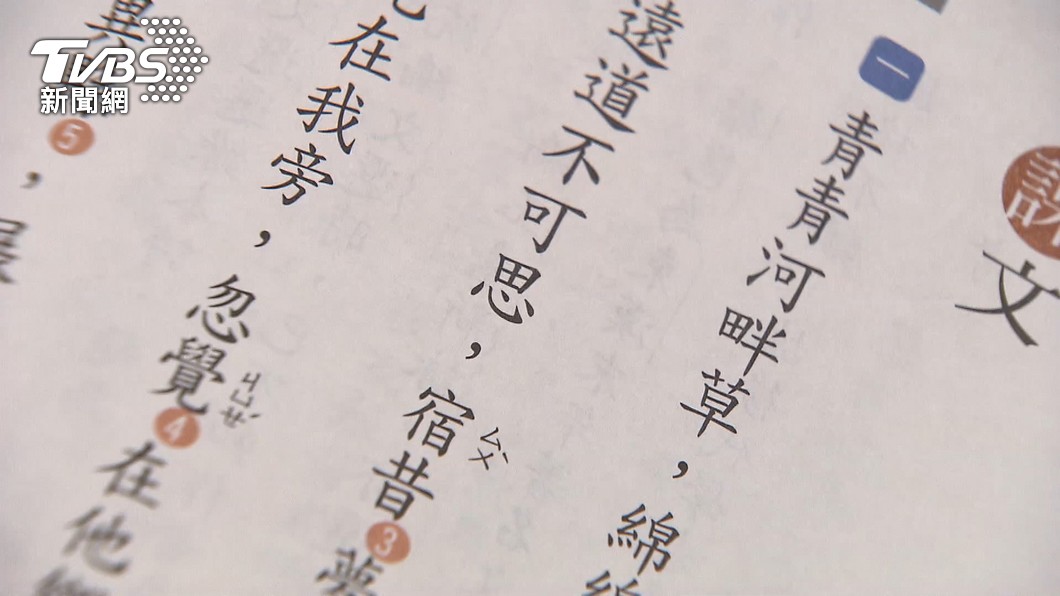 TVBS
新聞網
課文
一
青青河畔草，綿
遠道不可思，宿ㄙㄨˋ昔3夢
在我旁，忽覺ㄐㄩㄝˊ4在他
異5，